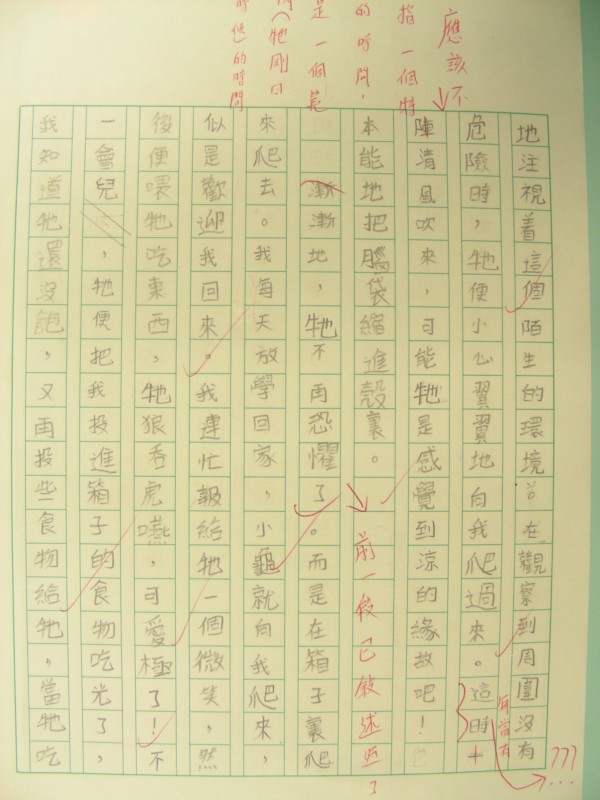 應該不
指一個特
的時間，
是一個籠
（牠剛回
時候）的時間
地注視着這個陌生的環境。在觀察到周圍沒有
危險時，牠便小心翼翼地向我爬過來。這時十
陣清風吹來，可能牠是感覺到涼的緣故吧！
所當有
???
本能地把腦袋縮進殼裏。
前一段已敍述些了
漸漸地，牠不再恐懼了。而是在箱子裏爬
來爬去。我每天放學回家，小龜就向我爬來，
似是歡迎我回來。我連忙報給牠一個微笑，然
後便喂牠吃東西，牠狼吞虎嚥，可愛極了！不
一會兒，牠便把我投進箱子的食物吃光了，
我知道牠還沒飽，又再投些食物給牠，當牠吃